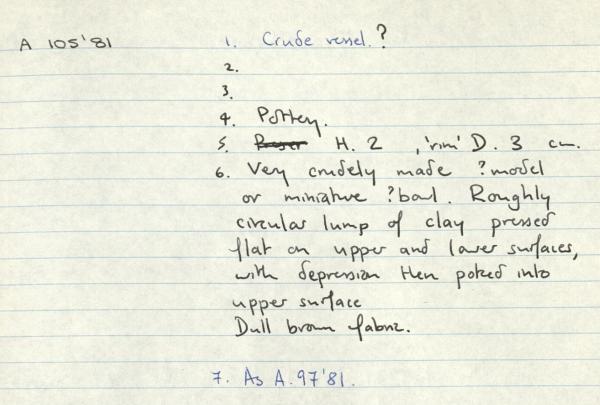 A 105'81
1. Crude vessel.?
2.
3.
4. Pottery.
5. H. 2 , 'rim' D. 3 cm.
6. Very crudely made ?model
or miniature ?bowl. Roughly
circular lump of clay pressed
flat on upper and lower surfaces,
with depression then poked into
upper surface
Dull brown fabric.
7. As A.97'81.